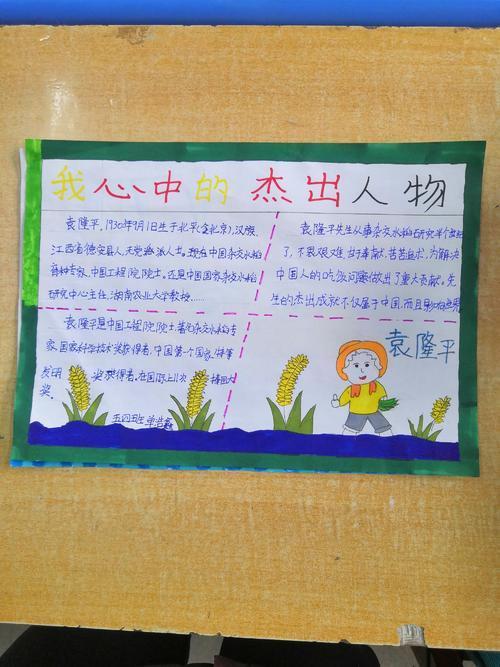 我心中的杰出人物
袁隆平，1930年9月1日生于北平(今北京)，汉族，
江西省德安县人，无党派人士。现在中国杂交水稻
育种专家，中国工程院院士。还是中国国家杂交水稻
研究中心主任，湖南农业大学教授……
袁隆平先生从事杂交水稻研究半个世纪
了，不畏艰难，甘于奉献，苦苦追求，为解决
中国人的吃饭问题做出了重大贡献。先
生的杰出成就不仅属于中国，而且影响世界
袁隆平是中国工程院院士著化杂交水稻专
家，国家科学技术奖获得者，中国第一个国家特等
发明奖获得者。在国际上11次
奖
五四班
袁隆平